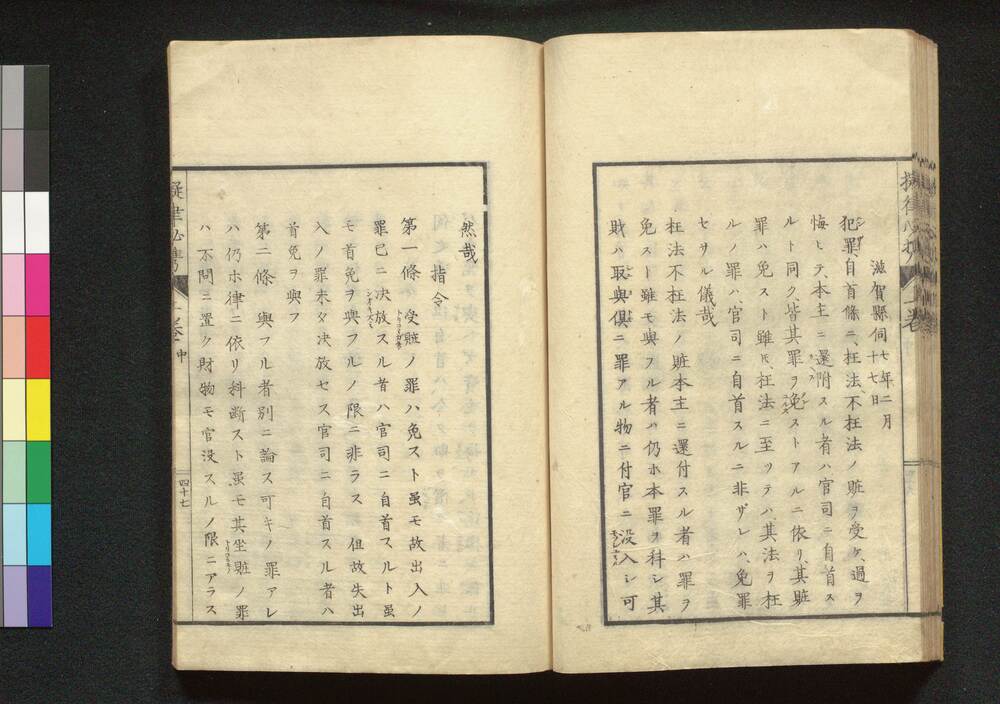 滋賀縣伺 七年二月十七日
犯罪自首條ニ、枉法不枉法ノ贓ヲ受ケ、過ヲ
悔ヒテ、本主ニ還附スル者ハ官司ニ自首ス
ルト同ク、皆其罪ヲ免ストアルニ依リ、其贓
罪ハ免スト雖モ、枉法ニ至ツテハ、其法ヲ枉
ルノ罪ハ官司ニ自首スルニ非ザレハ、免罪
セサル儀哉
枉法不枉法ノ贓本主ニ還付スル者ハ罪ヲ
免スト雖モ與フル者ハ仍ホ本罪ヲ科シ其
財ハ取與俱ニ罪アル物ニ付官ニ沒入シ可
然哉
指令
第一條 受贓ノ罪ハ免スト虽モ故出入ノ
罪已ニ决放スル者ハ官司ニ自首スルト虽
モ首免ヲ與フルノ限ニ非ラス 但故失出
入ノ罪未タ决放セス官司ニ自首スル者ハ
首免ヲ與フ
第二條 與フル者別ニ論ス可キノ罪アレ
ハ仍ホ律ニ依リ科断スト虽モ其坐贓ノ罪
ハ不問ニ置ク財物モ官没スルノ限ニアラス
中
四十七